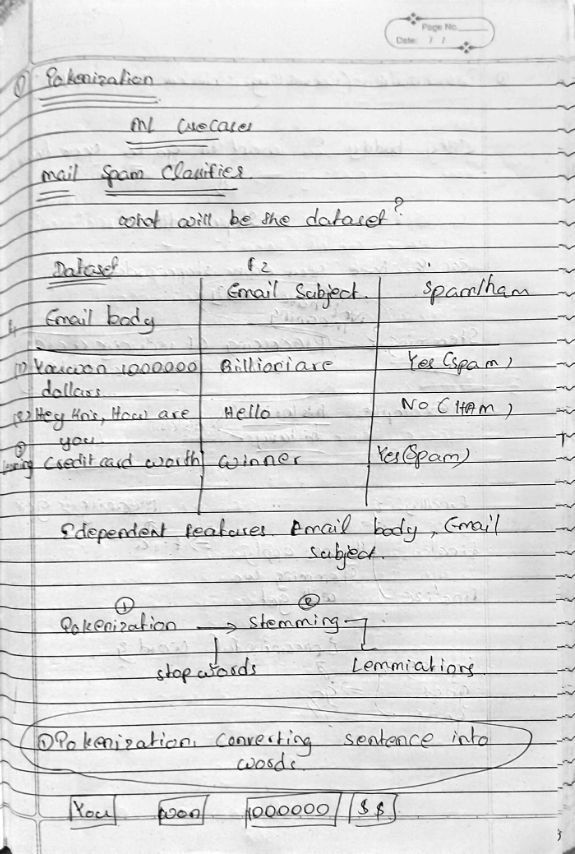 Page No.
Date: / /
① Tokenization
ML Usecases
mail Spam Classifier
what will be the dataset?
Dataset f2
Email body Email Subject. Spam/ham
(1) You won 1000000 Billioriare Yes (Spam)
dollars
(2) Hey Kris, How are Hello No (HAM)
you
③ Credit card worth winner Yes (Spam)
Idependent features Email body, Email
subject.
① ②
Tokenization → Stemming
stopwords Lemmiations
① Tokenization, Converting sentence into
words.
You won 1000000 $$